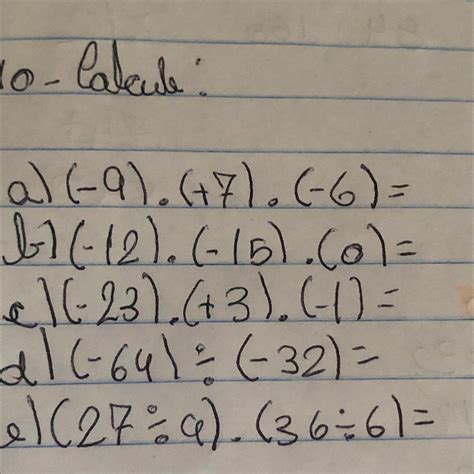 10- Calcule:
a) (-9) . (+7) . (-6) =
b) (-12) . (-15) . (0) =
c) (-23) . (+3) . (-1) =
d) (-64) ÷ (-32) =
e) (27 ÷ 9) . (36 ÷ 6) =